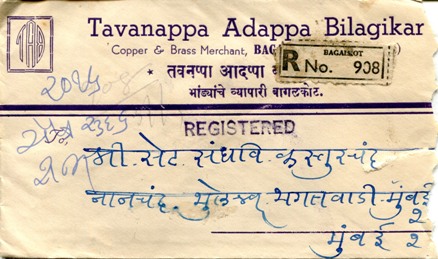 TAB
Tavanappa Adappa Bilagikar
Copper & Brass Merchant, BAG
BAGALKOT
R No. 908
* तवनप्पा आदप्पा
भांड्यांचे व्यापारी बागलकोट.
REGISTERED
श्री. सेट. संघवि. कस्तुरचंद
नानचंद. भुलेश्वर भगतवाडी मुंबई
२
मुंबई २